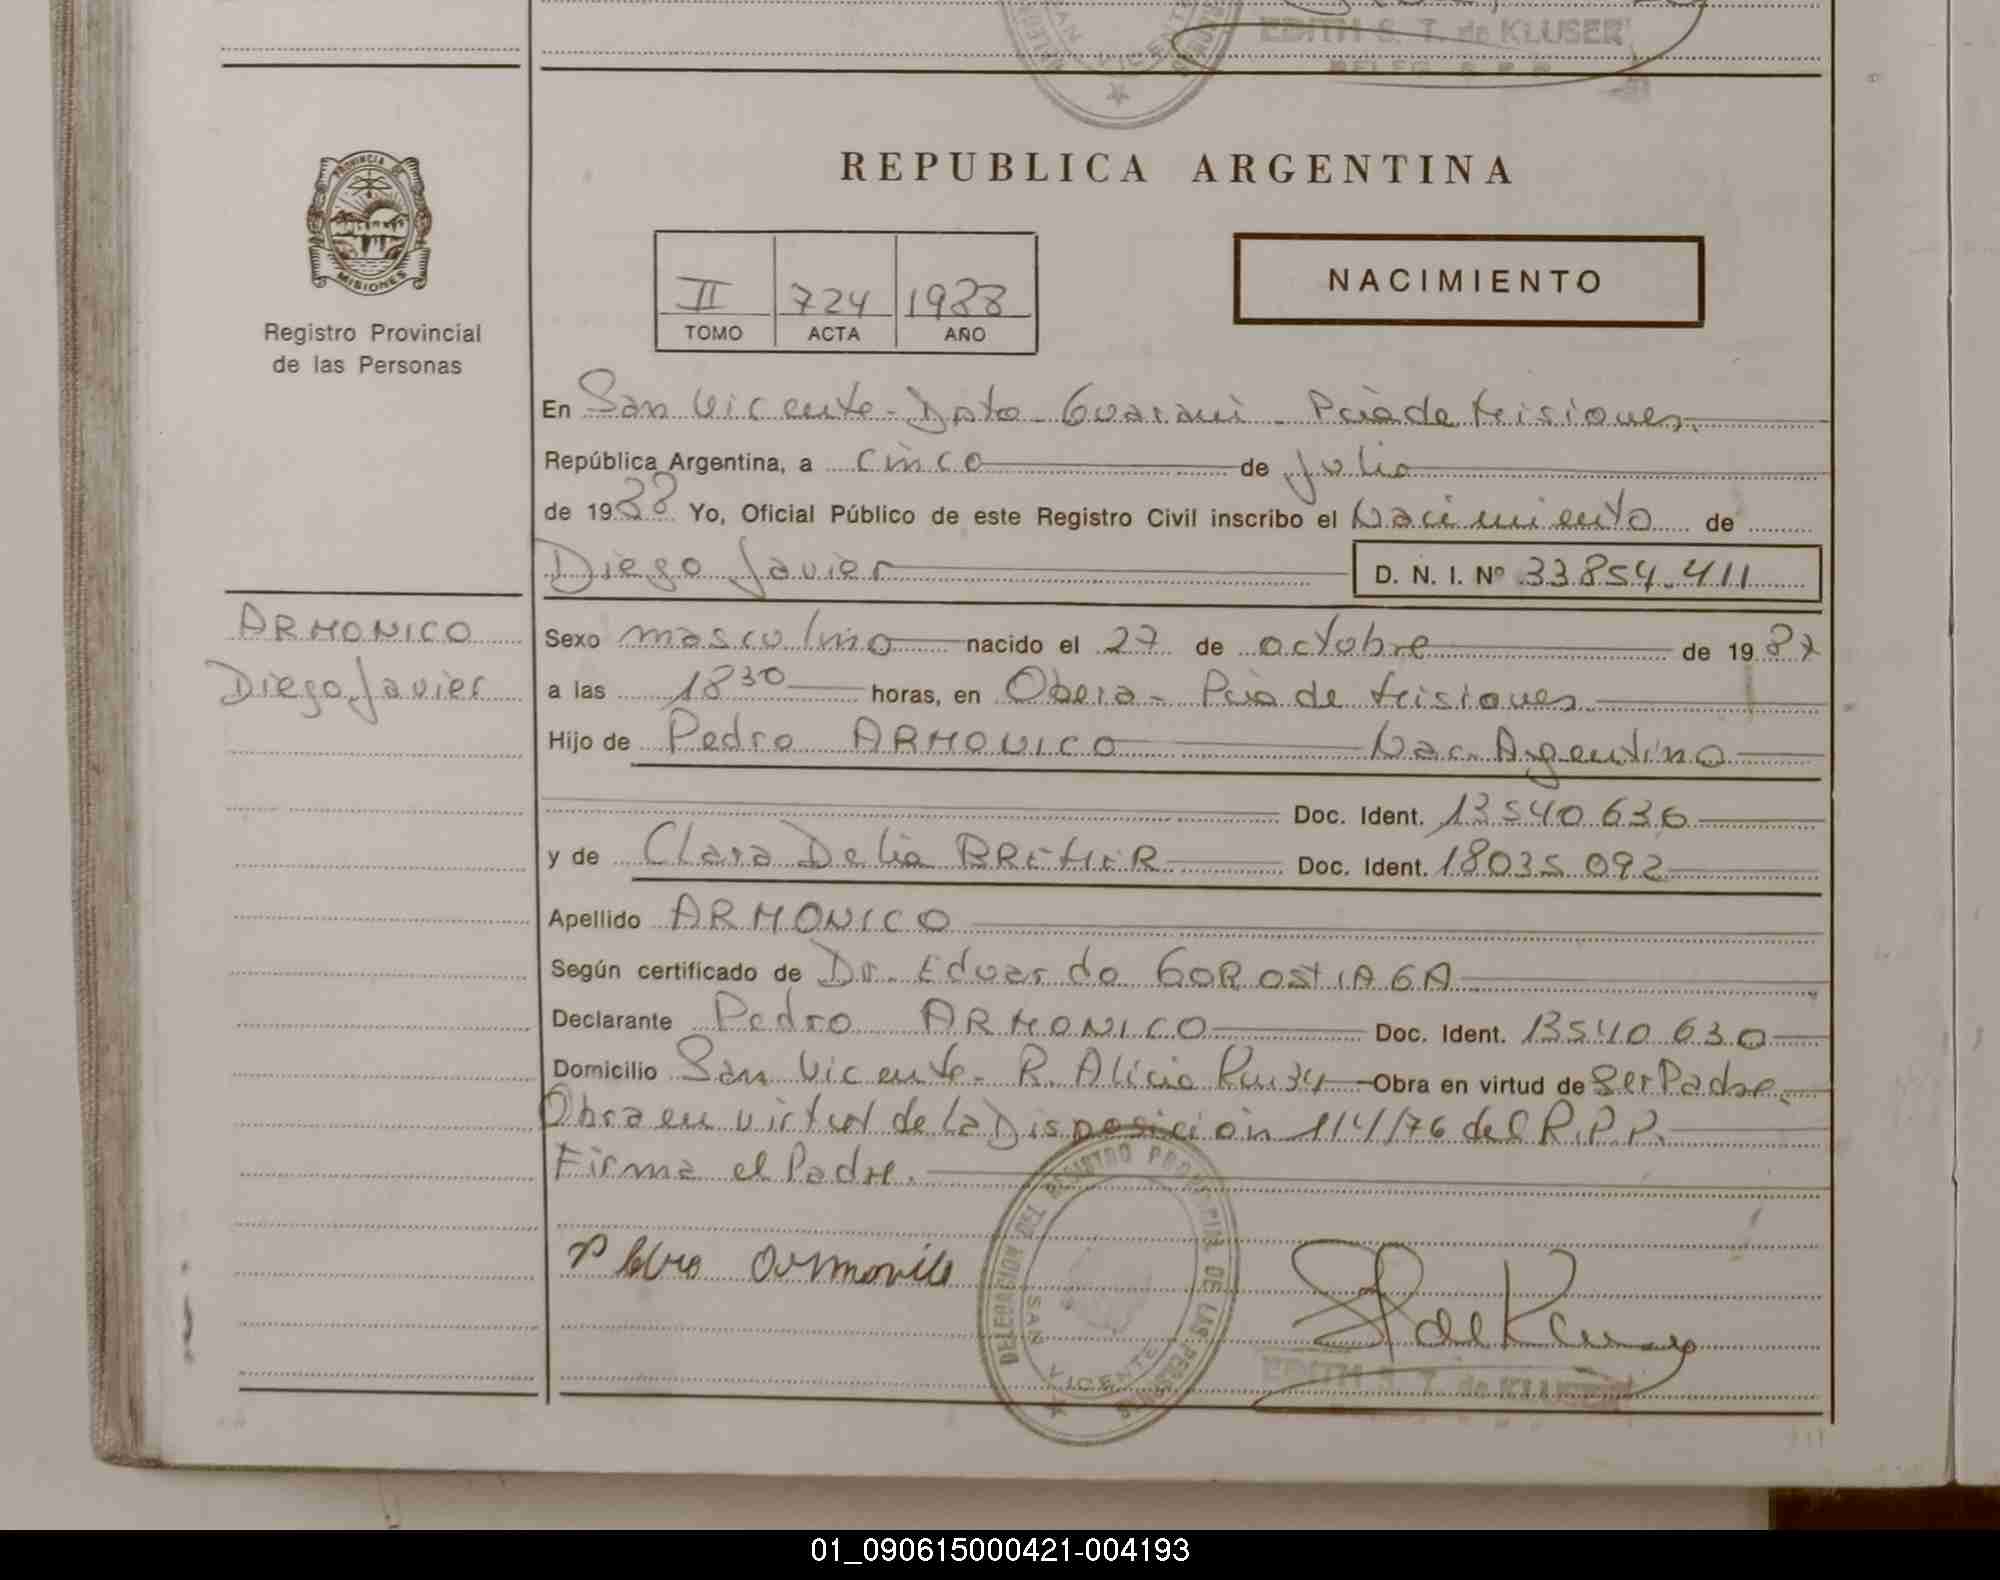 EDITH S. T. de KLUSER
SAN VICENTE
REPUBLICA ARGENTINA
PROVINCIA DE MISIONES
Registro Provincial
de las Personas
II 724 1988
TOMO ACTA AÑO
NACIMIENTO
En San Vicente - Dpto - Guarani - Pcia de Misiones.
República Argentina, a cinco de Julio
de 1988 Yo, Oficial Público de este Registro Civil inscribo el Nacimiento de
Diego Javier D. N. I. Nº 33854.411
ARMONICO
Diego Javier
Sexo masculino nacido el 27 de octubre de 1987
a las 18 30 horas, en Obera - Pcia de Misiones
Hijo de Pedro ARMONICO Nac. Argentino
Doc. Ident. 13540630
y de Clara Delia Doc. Ident. 18035092
Apellido ARMONICO
Según certificado de Dr. Eduardo GOROSTIAGA
Declarante Pedro ARMONICO Doc. Ident. 13540630
Domicilio San Vicente - R. Alicia Obra en virtud de Ser Padre.
Obra en virtud de la Disposición 114/76 del R.P.P.
Firma el Padre.
DELEGACION REGISTRO PROVINCIAL DE LAS PERSONAS
SAN VICENTE
EDITH S. T. de KLUSER
01_090615000421-004193